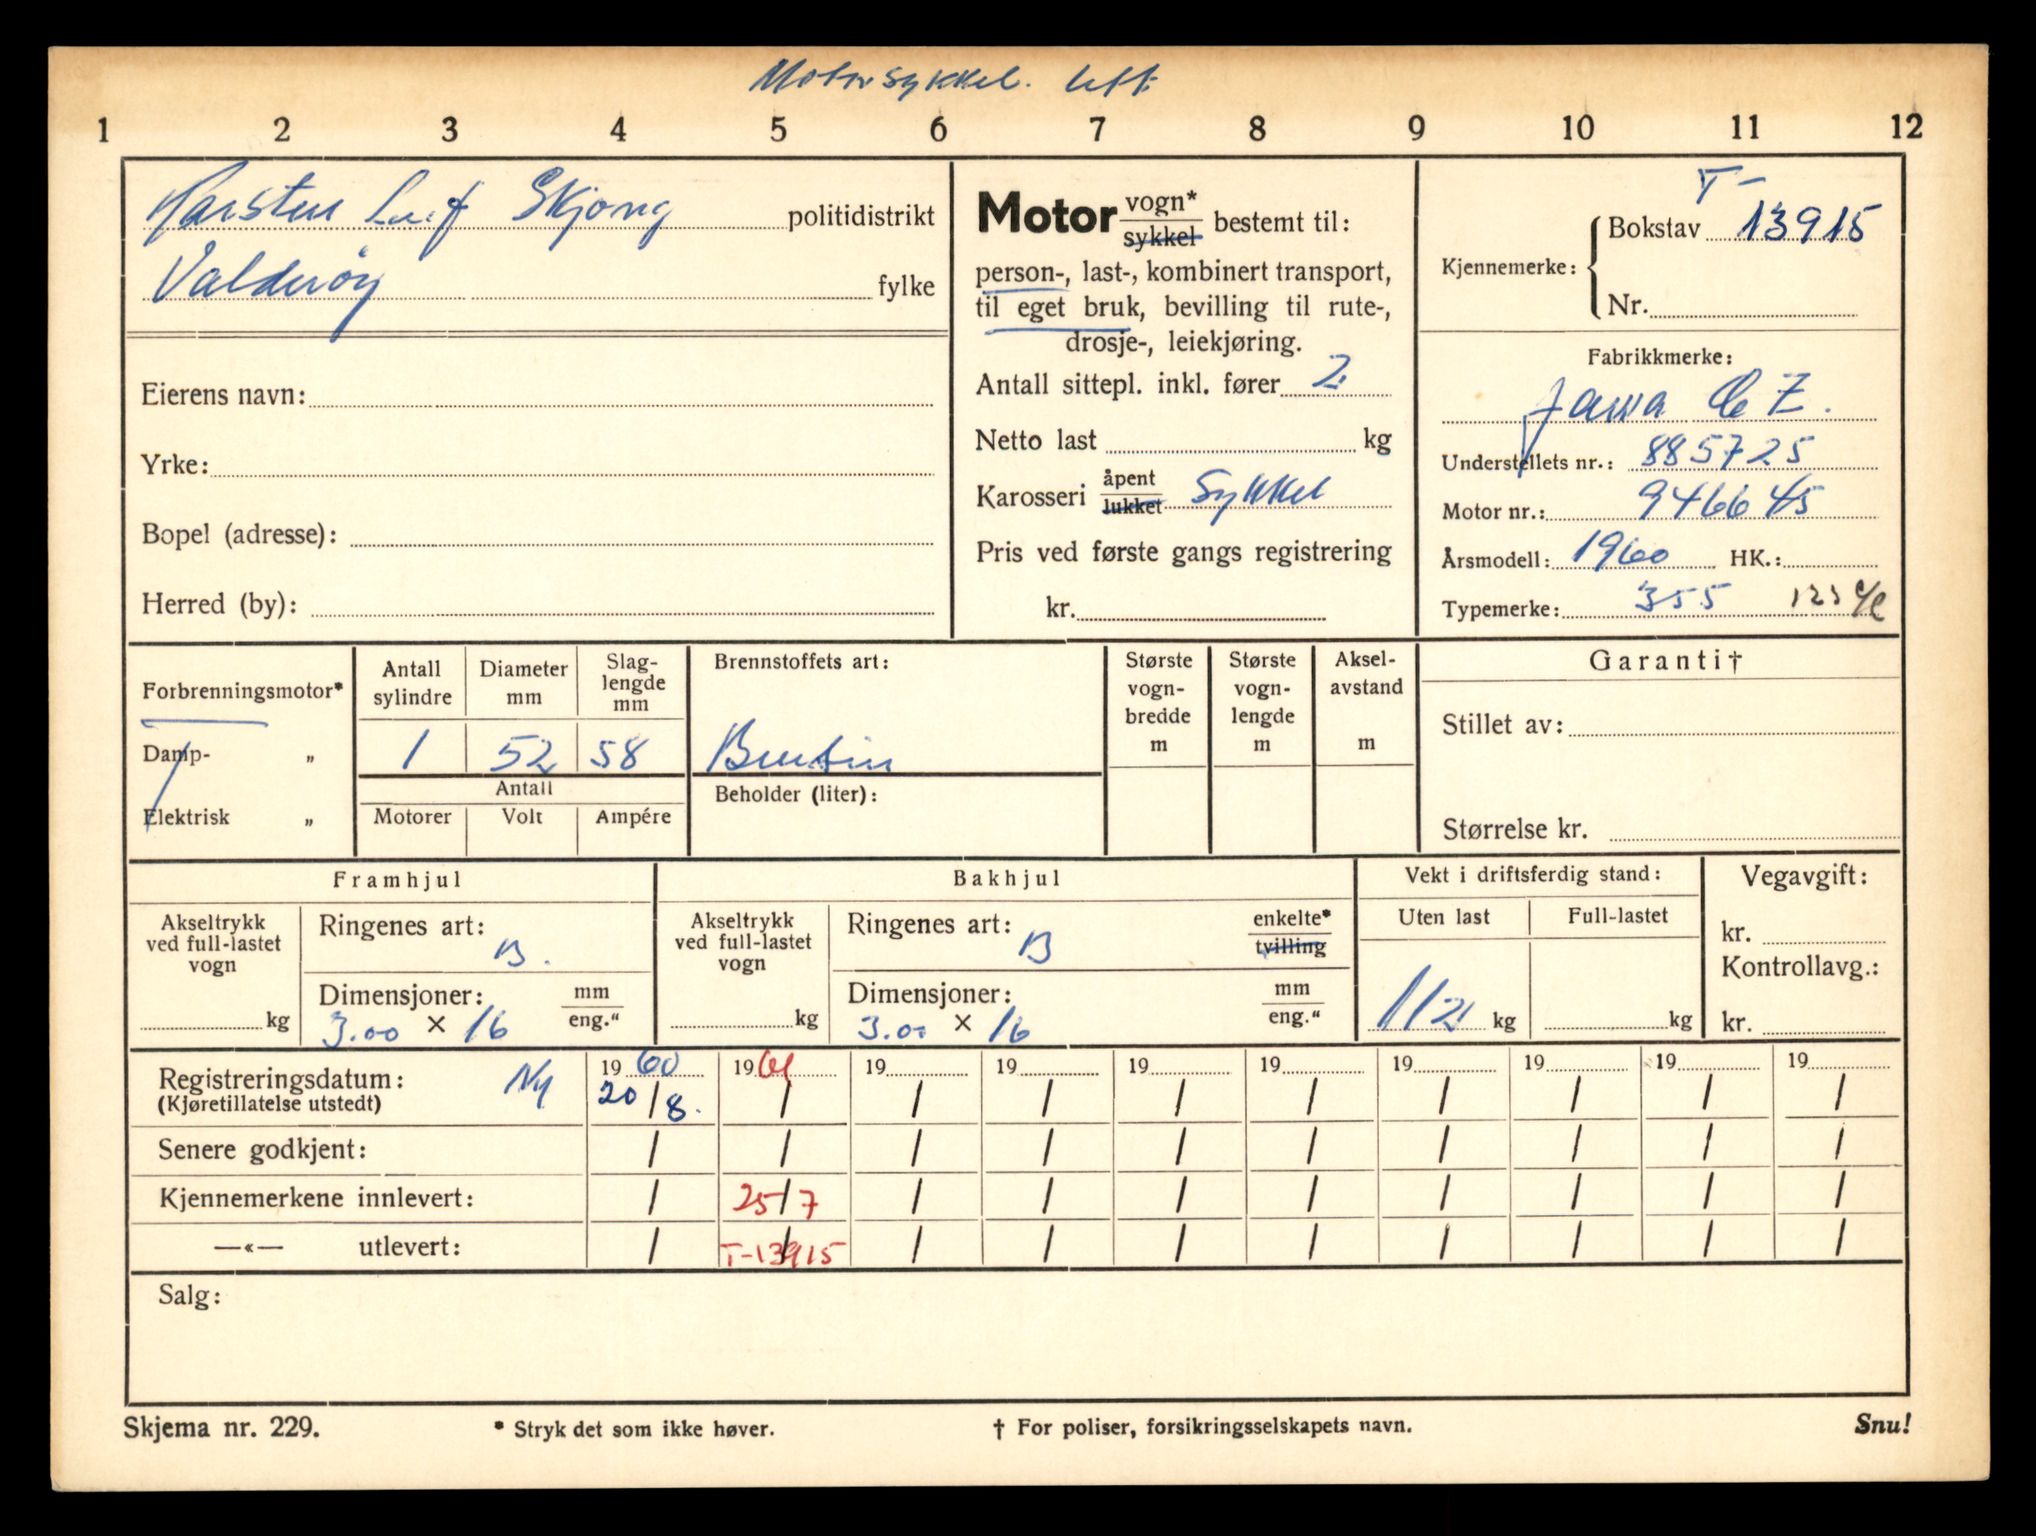 Motorsykkel. lett
1 2 3 4 5 6 7 8 9 10 11 12
Karsten Leif Skjong politidistrikt
Valderöy fylke
Eierens navn:
Yrke:
Bopel (adresse):
Herred (by):
Motor vogn* sykkel bestemt til:
person-, last-, kombinert transport,
til eget bruk, bevilling til rute-,
drosje-, leiekjøring.
Antall sittepl. inkl. fører 2
Netto last kg
Karosseri åpent lukket Sykkel
Pris ved første gangs registrering
kr.
T-
Kjennemerke: Bokstav 13915
Nr.
Fabrikkmerke:
Jawa CZ.
Understellets nr.: 885725
Motor nr.: 946645
Årsmodell: 1960 HK.:
Typemerke: 355 123
Forbrenningsmotor*
Damp- „
Elektrisk „
Antall sylindre
1
Diameter mm
52
Slag-lengde mm
58
Antall
Motorer Volt Ampére
Brennstoffets art:
Bensin
Beholder (liter):
Største vogn-bredde m
Største vogn-lengde m
Aksel-avstand m
Garanti†
Stillet av:
Størrelse kr.
Framhjul
Akseltrykk ved full-lastet vogn
kg
Ringenes art:
B.
Dimensjoner: mm eng."
3.00 × 16
Bakhjul
Akseltrykk ved full-lastet vogn
kg
Ringenes art: enkelte* tvilling
B
Dimensjoner: mm eng."
3.00 × 16
Vekt i driftsferdig stand:
Uten last Full-lastet
112 kg kg
Vegavgift:
kr.
Kontrollavg.:
kr.
Registreringsdatum: Ny 1960 1961 19 19 19 19 19 19 19 19
(Kjøretillatelse utstedt) 20/8. / / / / / / / / /
Senere godkjent: / / / / / / / / / /
Kjennemerkene innlevert: / 25/7 / / / / / / / /
—«— utlevert: / T-13915 / / / / / / / /
Salg:
Skjema nr. 229. * Stryk det som ikke høver. † For poliser, forsikringsselskapets navn. Snu!